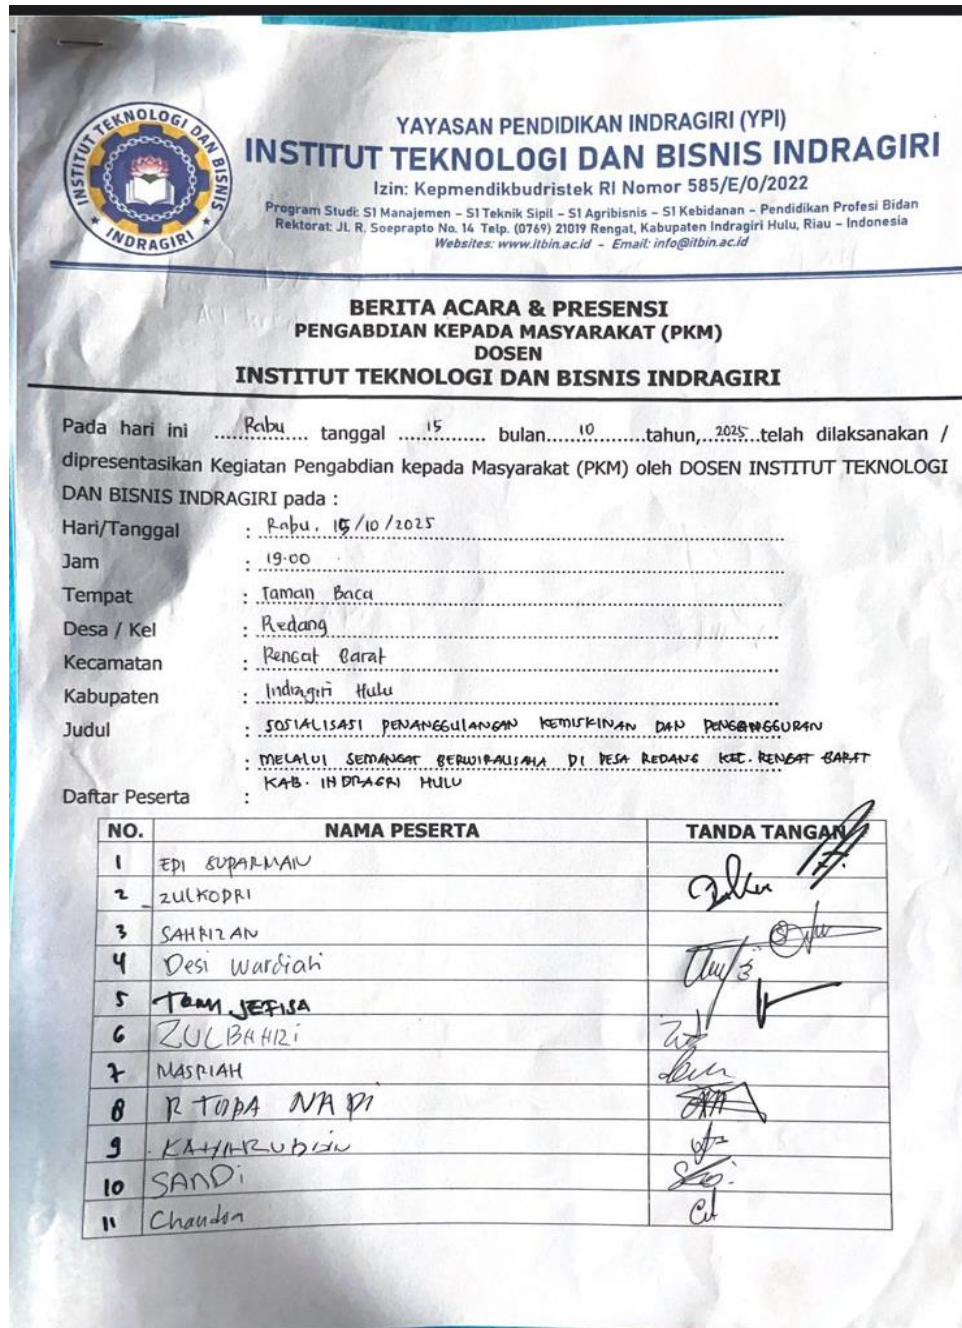 INSTITUT TEKNOLOGI DAN BISNIS
INDRAGIRI
YAYASAN PENDIDIKAN INDRAGIRI (YPI)
INSTITUT TEKNOLOGI DAN BISNIS INDRAGIRI
Izin: Kepmendikbudristek RI Nomor 585/E/O/2022
Program Studi: S1 Manajemen – S1 Teknik Sipil – S1 Agribisnis – S1 Kebidanan – Pendidikan Profesi Bidan
Rektorat: Jl. R. Soeprapto No. 14 Telp. (0769) 21019 Rengat, Kabupaten Indragiri Hulu, Riau – Indonesia
Websites: www.itbin.ac.id – Email: info@itbin.ac.id
BERITA ACARA & PRESENSI
PENGABDIAN KEPADA MASYARAKAT (PKM)
DOSEN
INSTITUT TEKNOLOGI DAN BISNIS INDRAGIRI
Pada hari ini Rabu tanggal 15 bulan 10 tahun, 2025 telah dilaksanakan /
dipresentasikan Kegiatan Pengabdian kepada Masyarakat (PKM) oleh DOSEN INSTITUT TEKNOLOGI
DAN BISNIS INDRAGIRI pada :
Hari/Tanggal : Rabu, 15/10/2025
Jam : 19.00
Tempat : Taman Baca
Desa / Kel : Redang
Kecamatan : Rengat Barat
Kabupaten : Indragiri Hulu
Judul : SOSIALISASI PENANGGULANGAN KEMISKINAN DAN PENGANGGURAN
: MELALUI SEMANGAT BERWIRAUSAHA DI DESA REDANG KEC. RENGAT BARAT
KAB. INDRAGRI HULU
Daftar Peserta :
NO. NAMA PESERTA TANDA TANGAN
1 EPI SUPARMAN
2 ZULKOPRI
3 SAHRIZAN
4 Desi Wardiah
5 JEFISA
6 ZULBAHRi
7 MASRIAH
8 R TOPA NADi
9 KAHARUDIN
10 SANDi
11 Chandra